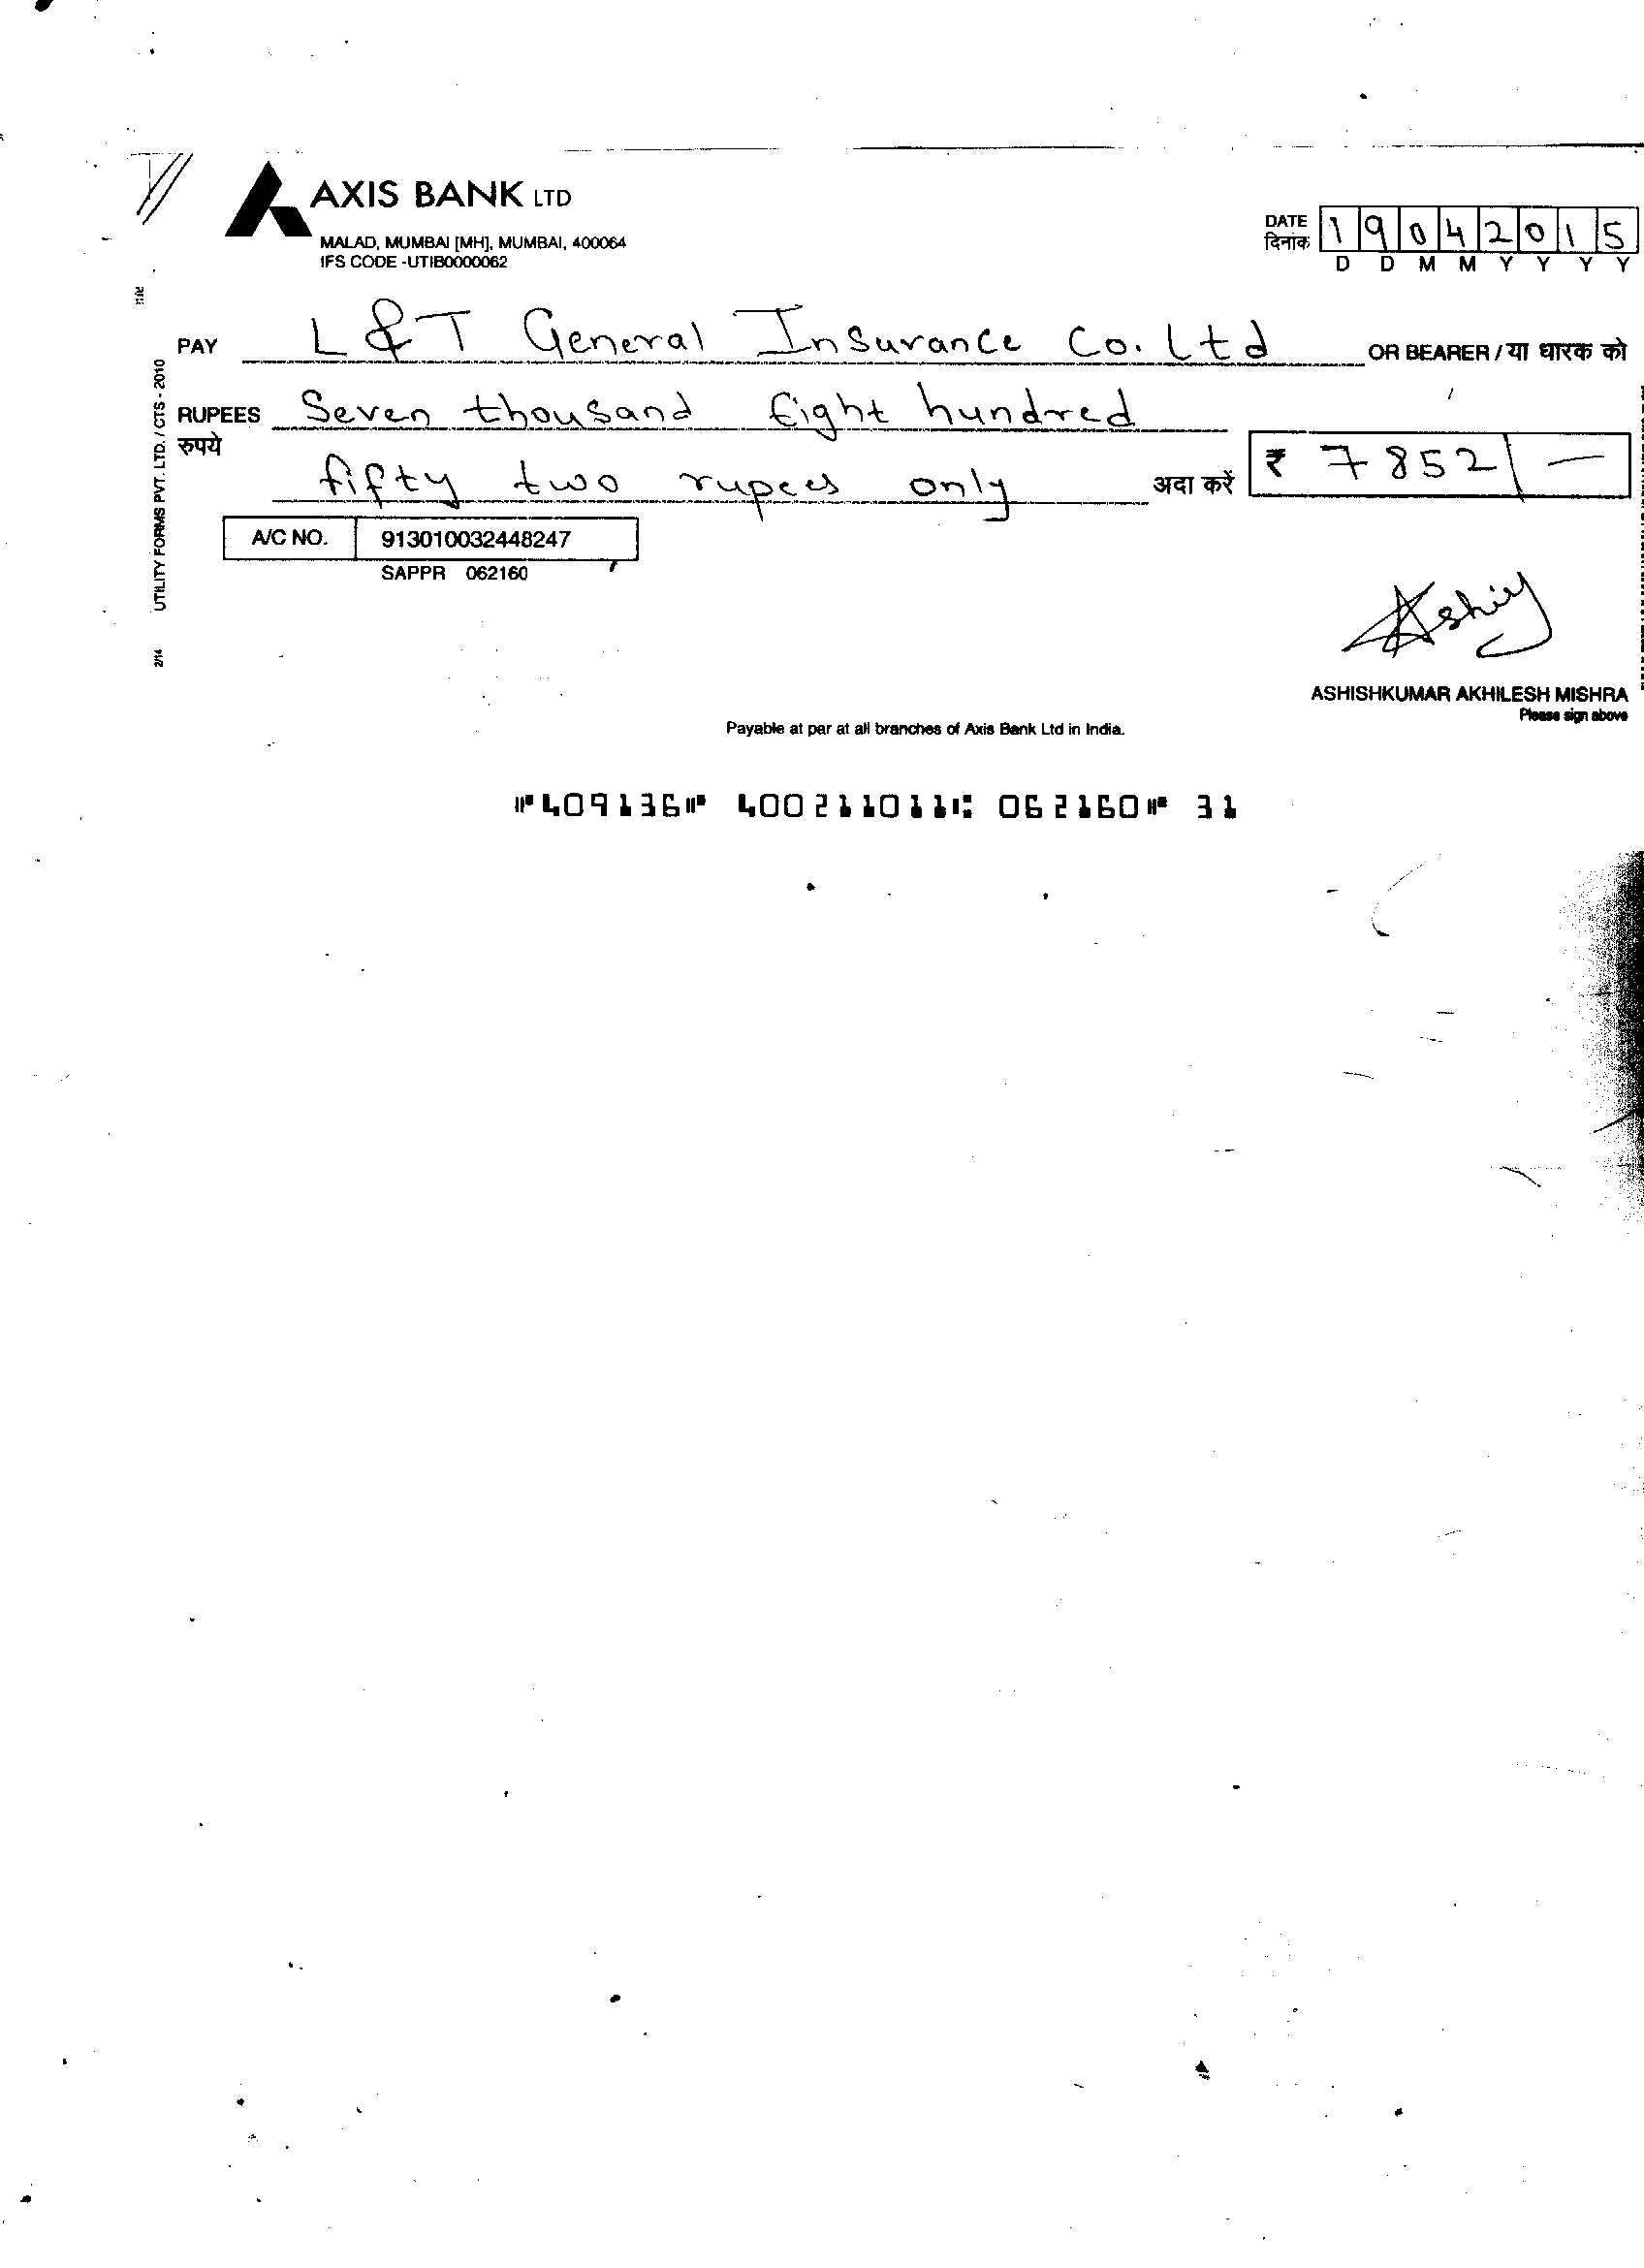 AXIS BANK LTD
MALAD, MUMBAI [MH], MUMBAI, 400064
IFS CODE -UTIB0000062
DATE 19042015
दिनांक D D M M Y Y Y Y
PAY L & T General Insurance Co. Ltd OR BEARER / या धारक को
RUPEES Seven thousand Eight hundred
रुपये
fifty two rupees only अदा करें ₹ 7852/-
A/C NO. 913010032448247
SAPPR 062160
UTILITY FORMS PVT. LTD. / CTS - 2010
2/14
Ashish
ASHISHKUMAR AKHILESH MISHRA
Please sign above
Payable at par at all branches of Axis Bank Ltd in India.
⑈409136⑈ 400211011⑆ 062160⑈ 31